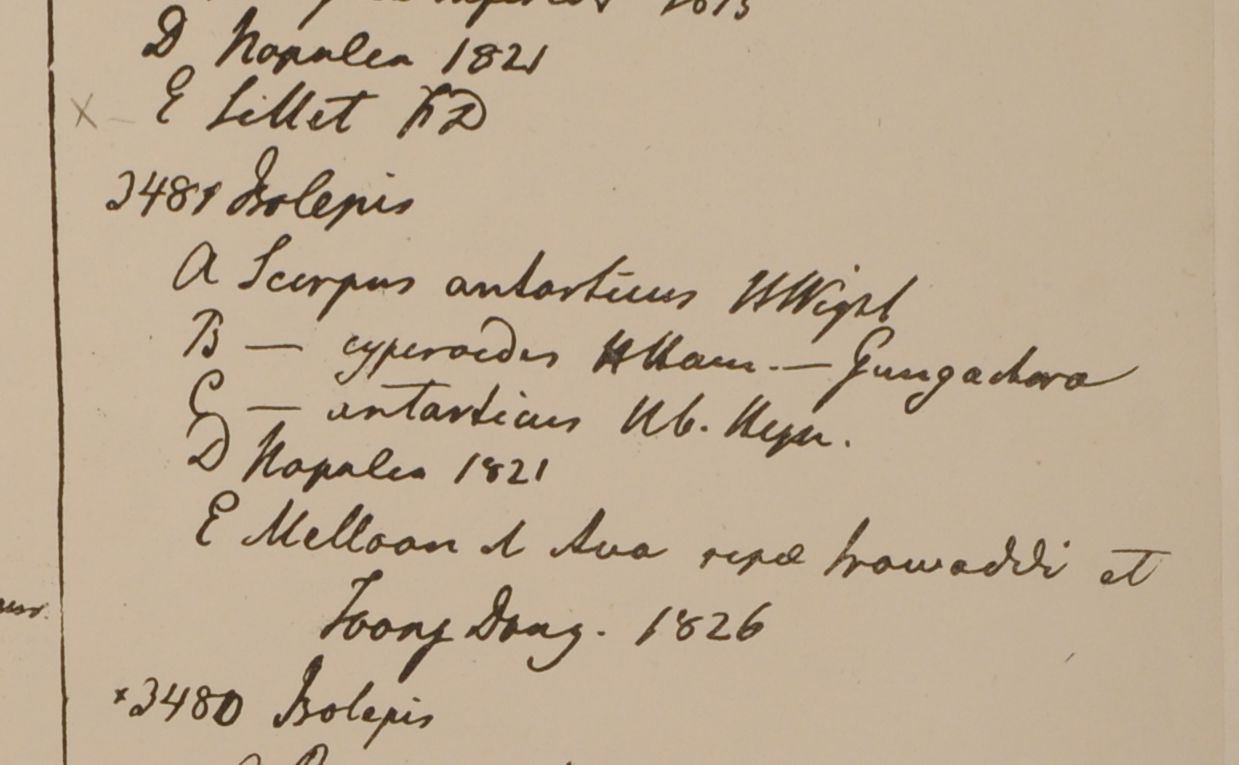 1813
D Napalea 1821
X E Sillet FD
3481 Isolepis
A Scirpus antarticus HWight
B — cyperoides HHam. — Gungachora
C — antarticus Hb. Heyn.
D Napalea 1821
E Melloon d Ava ripæ Irawaddi et
Toong Dong. 1826
x3480 Isolepis